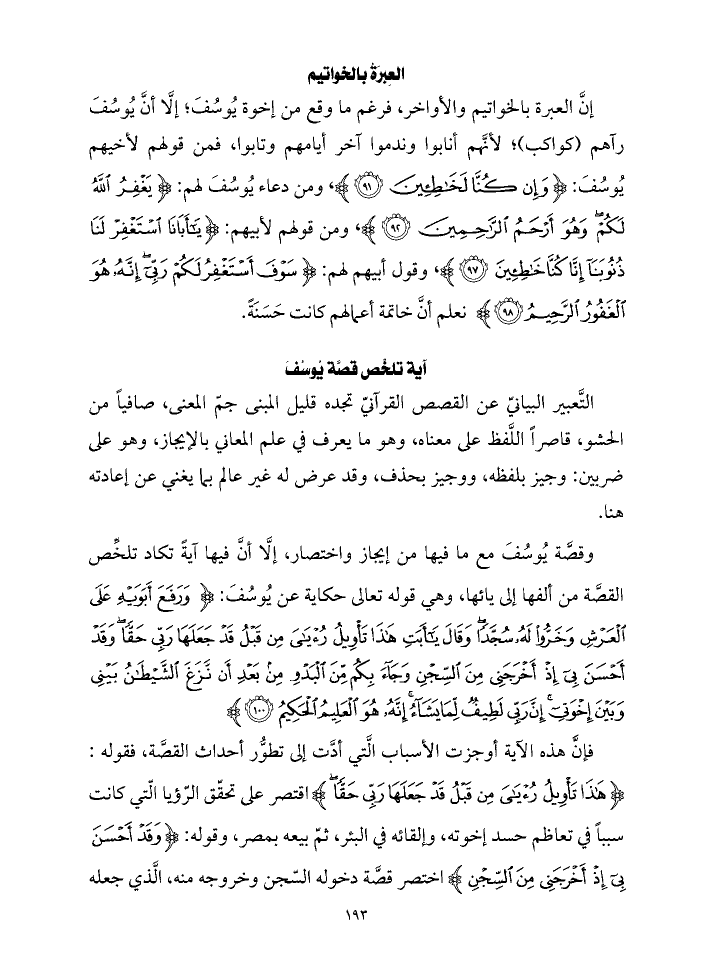 العِبرَة بالخواتيم
إنَّ العبرة بالخواتيم والأواخر، فرغم ما وقع من إخوة يُوسُفَ؛ إلَّا أنَّ يُوسُفَ
رآهم (كواكب)؛ لأنَّهم أنابوا وندموا آخر أيامهم وتابوا، فمن قولهم لأخيهم
يُوسُفَ: ﴿وَإِن كُنَّا لَخَٰطِـِٔينَ ٩١﴾، ومن دعاء يُوسُفَ لهم: ﴿يَغۡفِرُ ٱللَّهُ
لَكُمۡۖ وَهُوَ أَرۡحَمُ ٱلرَّٰحِمِينَ ٩٢﴾، ومن قولهم لأبيهم: ﴿يَٰٓأَبَانَا ٱسۡتَغۡفِرۡ لَنَا
ذُنُوبَنَآ إِنَّا كُنَّا خَٰطِـِٔينَ ٩٧﴾، وقول أبيهم لهم: ﴿سَوۡفَ أَسۡتَغۡفِرُ لَكُمۡ رَبِّيٓۖ إِنَّهُۥ هُوَ
ٱلۡغَفُورُ ٱلرَّحِيمُ ٩٨﴾ نعلم أنَّ خاتمة أعمالهم كانت حَسَنَةً.
آية تلخّص قصَّة يُوسُفَ
التَّعبير البيانيّ عن القصص القرآنيّ تجده قليل المبنى جمّ المعنى، صافياً من
الحشو، قاصراً اللَّفظ على معناه، وهو ما يعرف في علم المعاني بالإيجاز، وهو على
ضربين: وجيز بلفظه، ووجيز بحذف، وقد عرض له غير عالم بما يغني عن إعادته
هنا.
وقصَّة يُوسُفَ مع ما فيها من إيجاز واختصار، إلَّا أنَّ فيها آيةً تكاد تلخِّص
القصَّة من ألفها إلى يائها، وهي قوله تعالى حكاية عن يُوسُفَ: ﴿وَرَفَعَ أَبَوَيۡهِ عَلَى
ٱلۡعَرۡشِ وَخَرُّواْ لَهُۥ سُجَّدٗاۖ وَقَالَ يَٰٓأَبَتِ هَٰذَا تَأۡوِيلُ رُءۡيَٰيَ مِن قَبۡلُ قَدۡ جَعَلَهَا رَبِّي حَقّٗاۖ وَقَدۡ
أَحۡسَنَ بِيٓ إِذۡ أَخۡرَجَنِي مِنَ ٱلسِّجۡنِ وَجَآءَ بِكُم مِّنَ ٱلۡبَدۡوِ مِنۢ بَعۡدِ أَن نَّزَغَ ٱلشَّيۡطَٰنُ بَيۡنِي
وَبَيۡنَ إِخۡوَتِيٓۚ إِنَّ رَبِّي لَطِيفٞ لِّمَا يَشَآءُۚ إِنَّهُۥ هُوَ ٱلۡعَلِيمُ ٱلۡحَكِيمُ ١٠٠﴾
فإنَّ هذه الآية أوجزت الأسباب الَّتي أدَّت إلى تطوُّر أحداث القصَّة، فقوله :
﴿هَٰذَا تَأۡوِيلُ رُءۡيَٰيَ مِن قَبۡلُ قَدۡ جَعَلَهَا رَبِّي حَقّٗاۖ﴾ اقتصر على تحقّق الرّؤيا الّتي كانت
سبباً في تعاظم حسد إخوته، وإلقائه في البئر، ثمّ بيعه بمصر، وقوله: ﴿وَقَدۡ أَحۡسَنَ
بِيٓ إِذۡ أَخۡرَجَنِي مِنَ ٱلسِّجۡنِ﴾ اختصر قصَّة دخوله السّجن وخروجه منه، الَّذي جعله
١٩٣